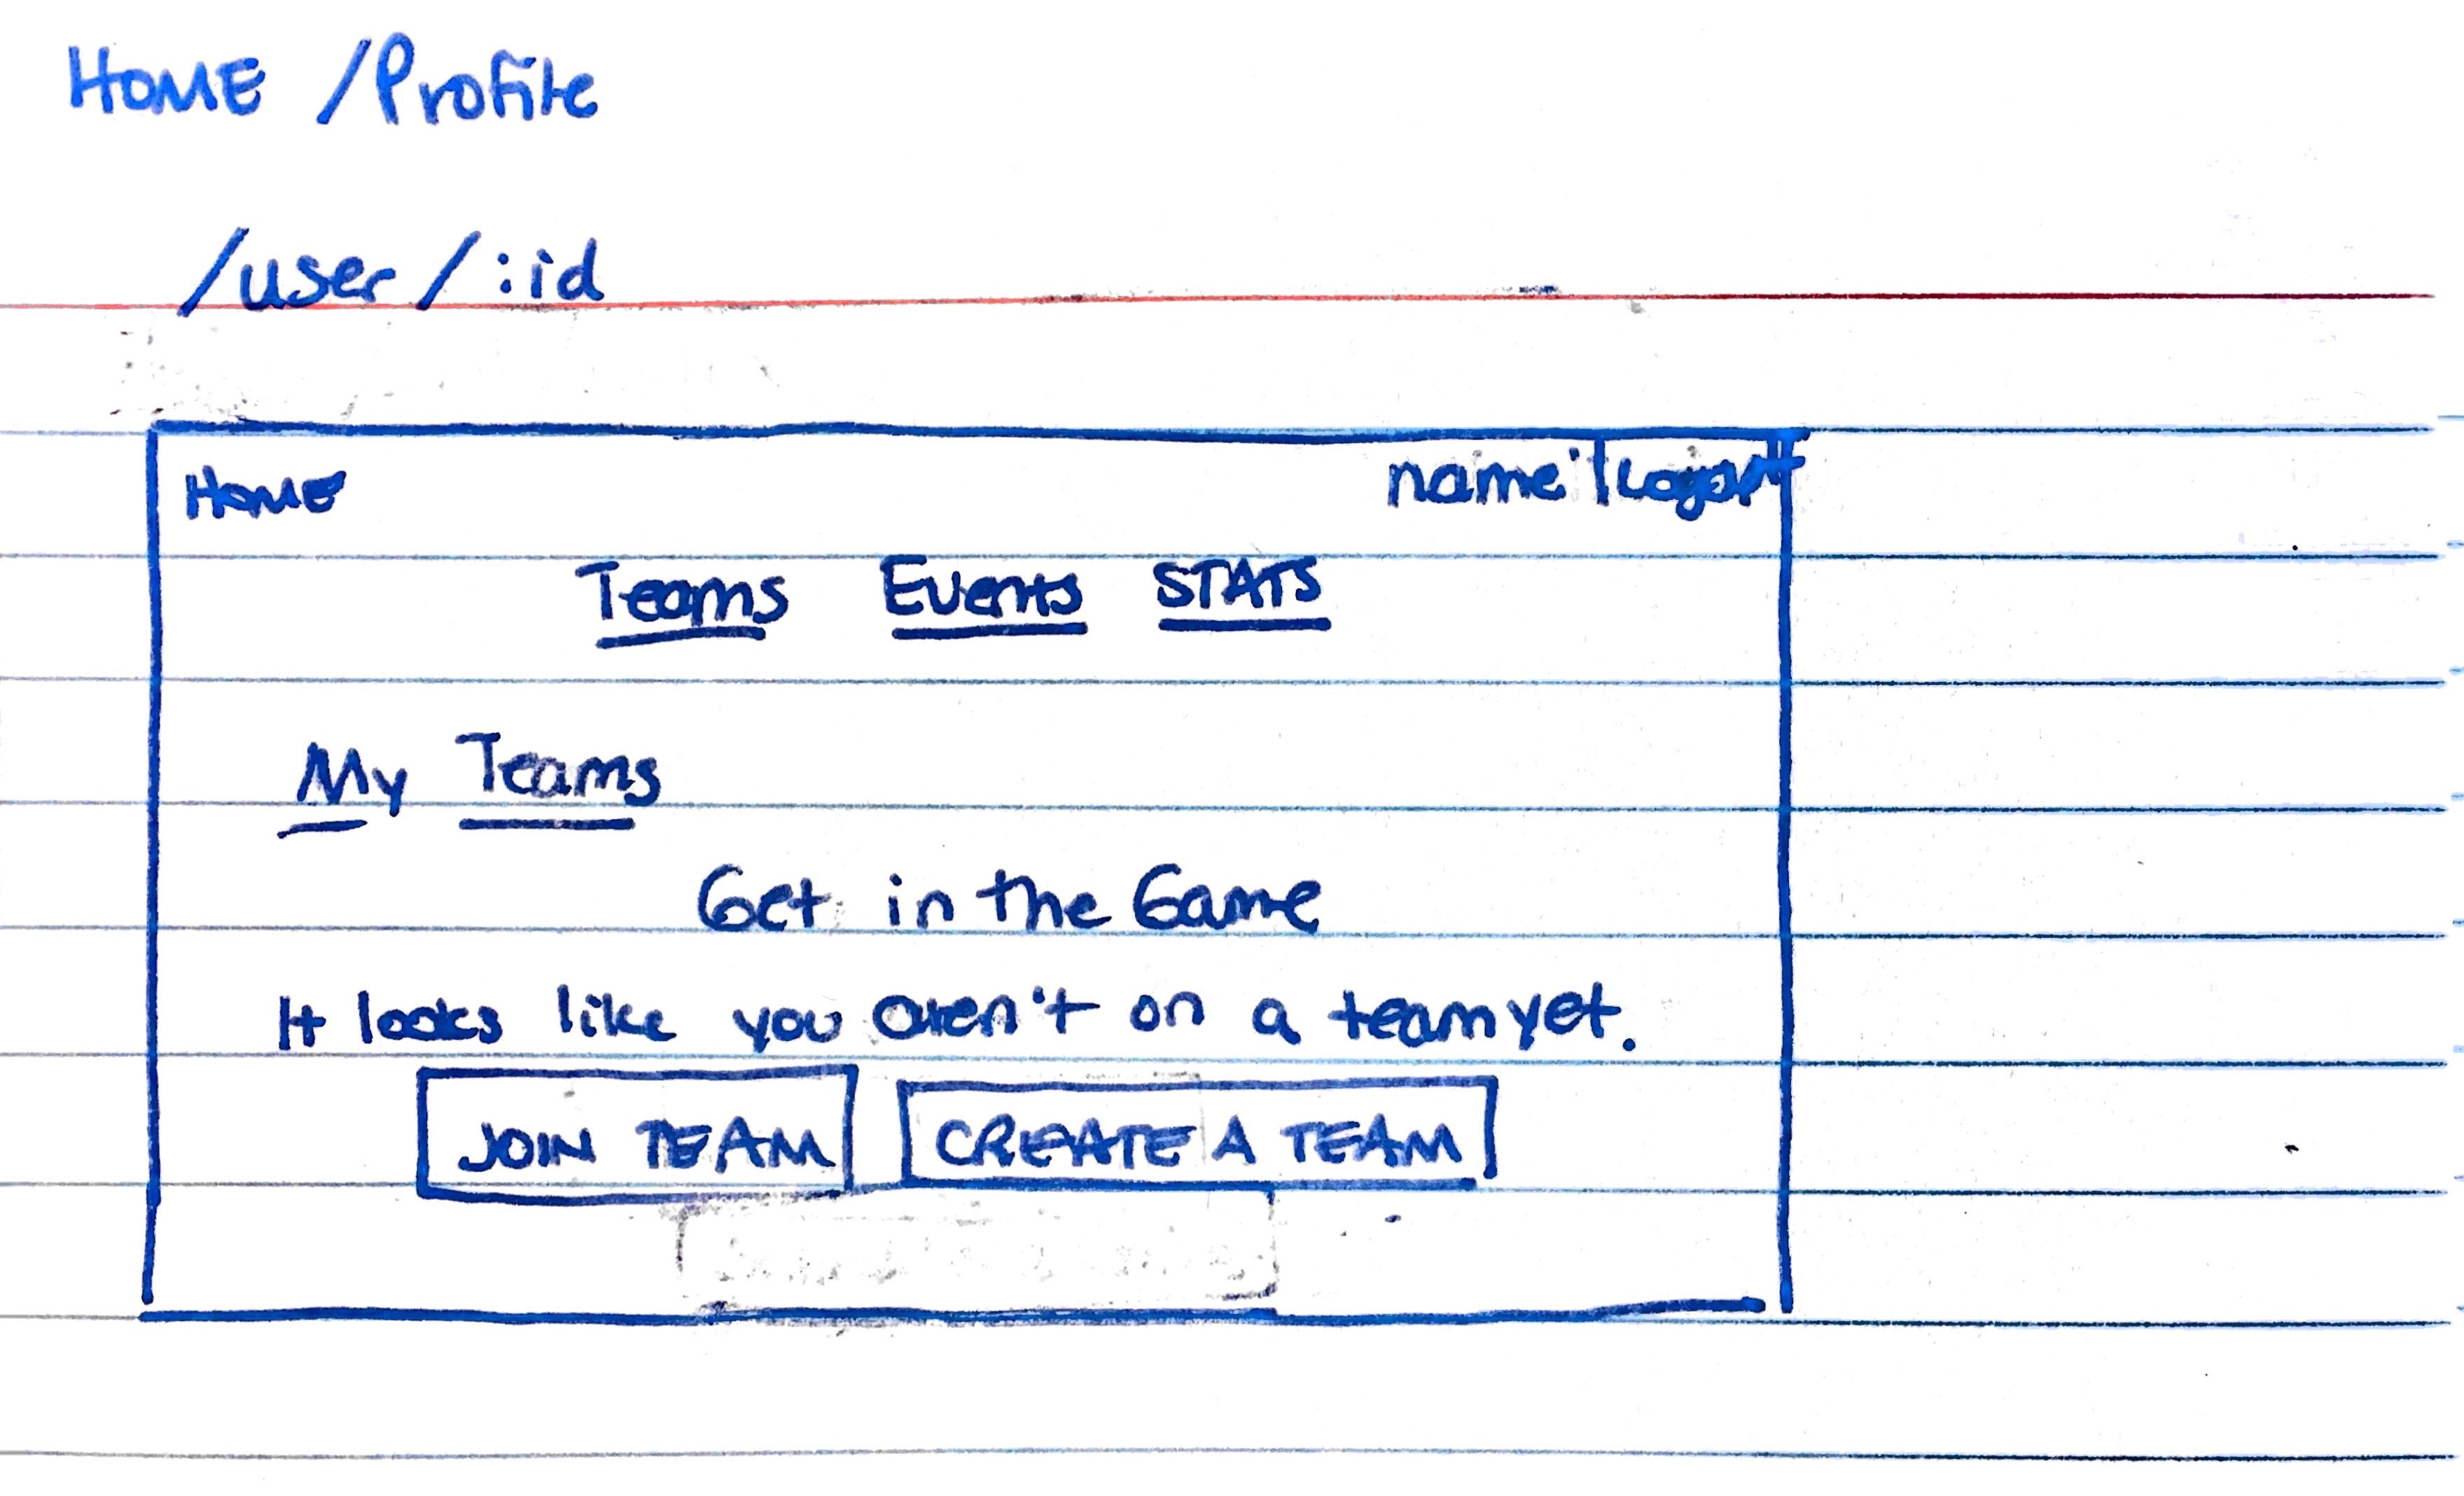 HOME /Profile
/user/:id
HOME name | Logout
Teams Events STATS
My Teams
Get in the Game
It looks like you aren't on a team yet.
JOIN TEAM CREATE A TEAM